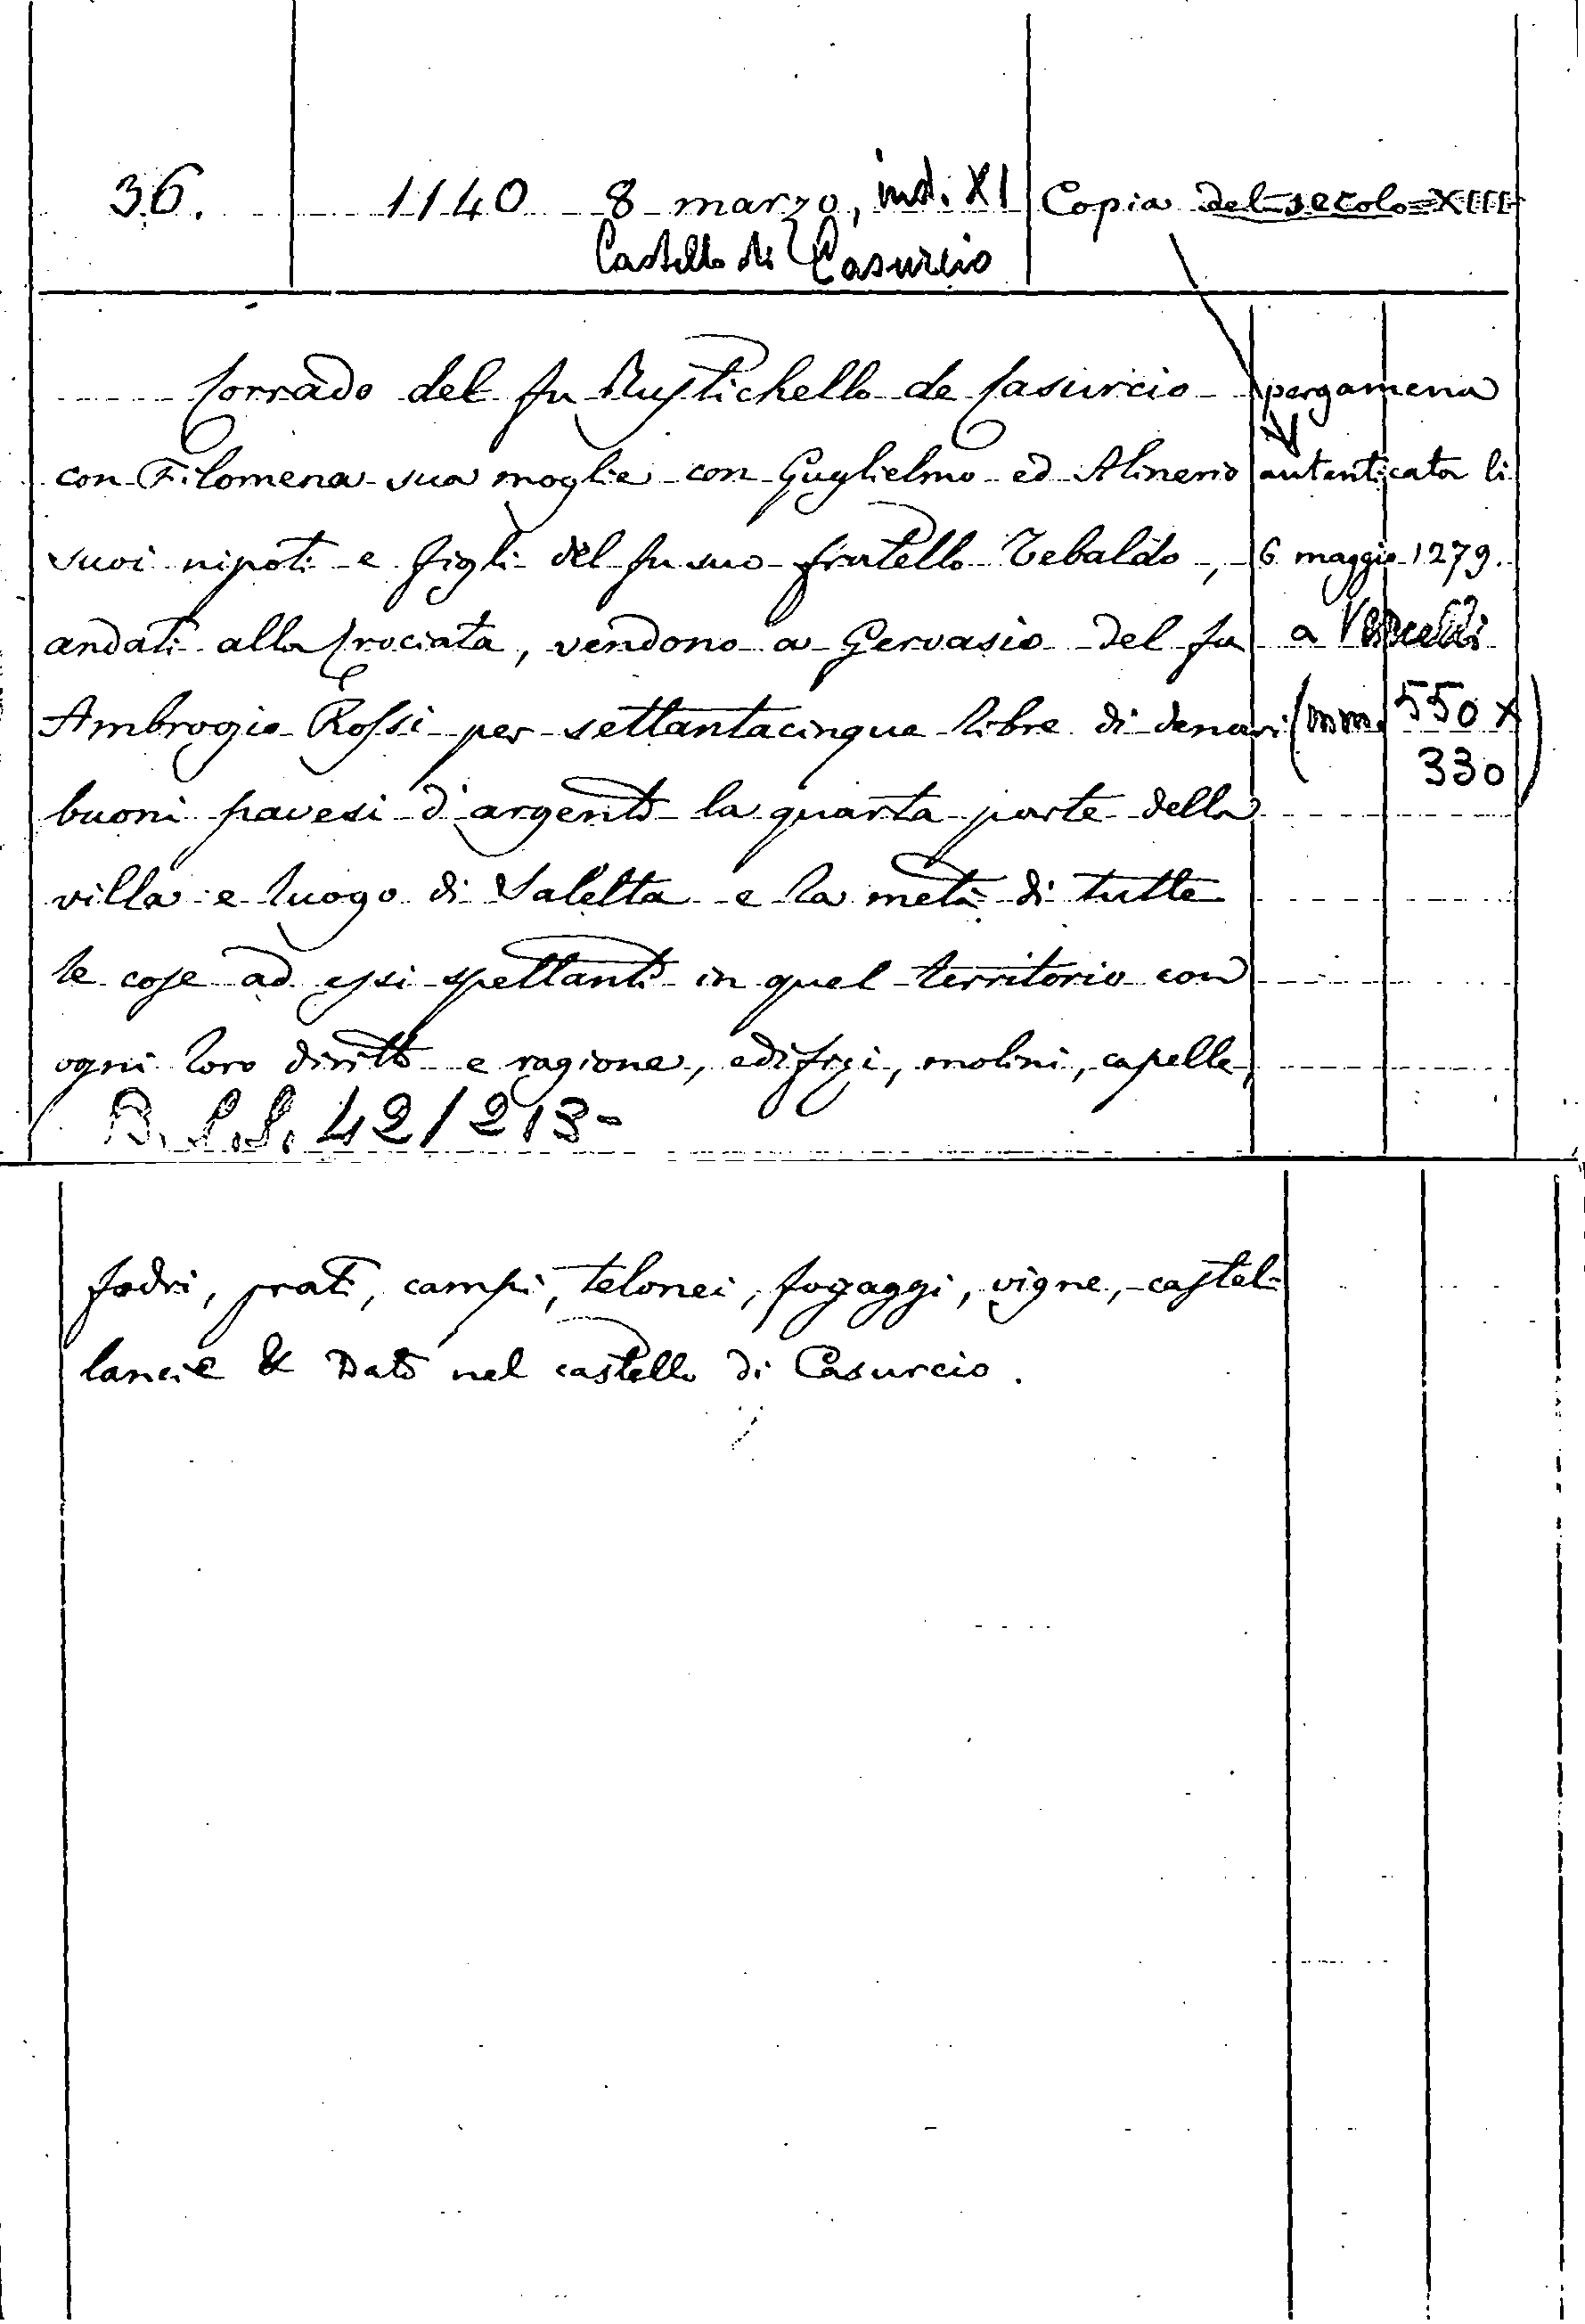 36. 1140 8 marzo, ind. XI Copia del secolo XIII
Castello di Casurcio
Corrado del fu Rustichello de Casurcio pergamena
con Filomena sua moglie con Guglielmo ed Alinerio autenticata li
suoi nipoti e figli del fu suo fratello Tebaldo, 6 maggio 1279.
andati alla Crociata, vendono a Gervasio del fu a Vercelli
Ambrogio Rossi per settantacinque libre di denari (mm. 550 x
330)
buoni pavesi d'argento la quarta parte della
villa e luogo di Saletta e la metà di tutte
le cose ad essi spettanti in quel territorio con
ogni loro diritto e ragione, edifizi, molini, capelle,
B.S.S. 42/213-
fodri, prati, campi, telonei, fogaggi, vigne, castel-
lancie & Dato nel castello di Casurcio.